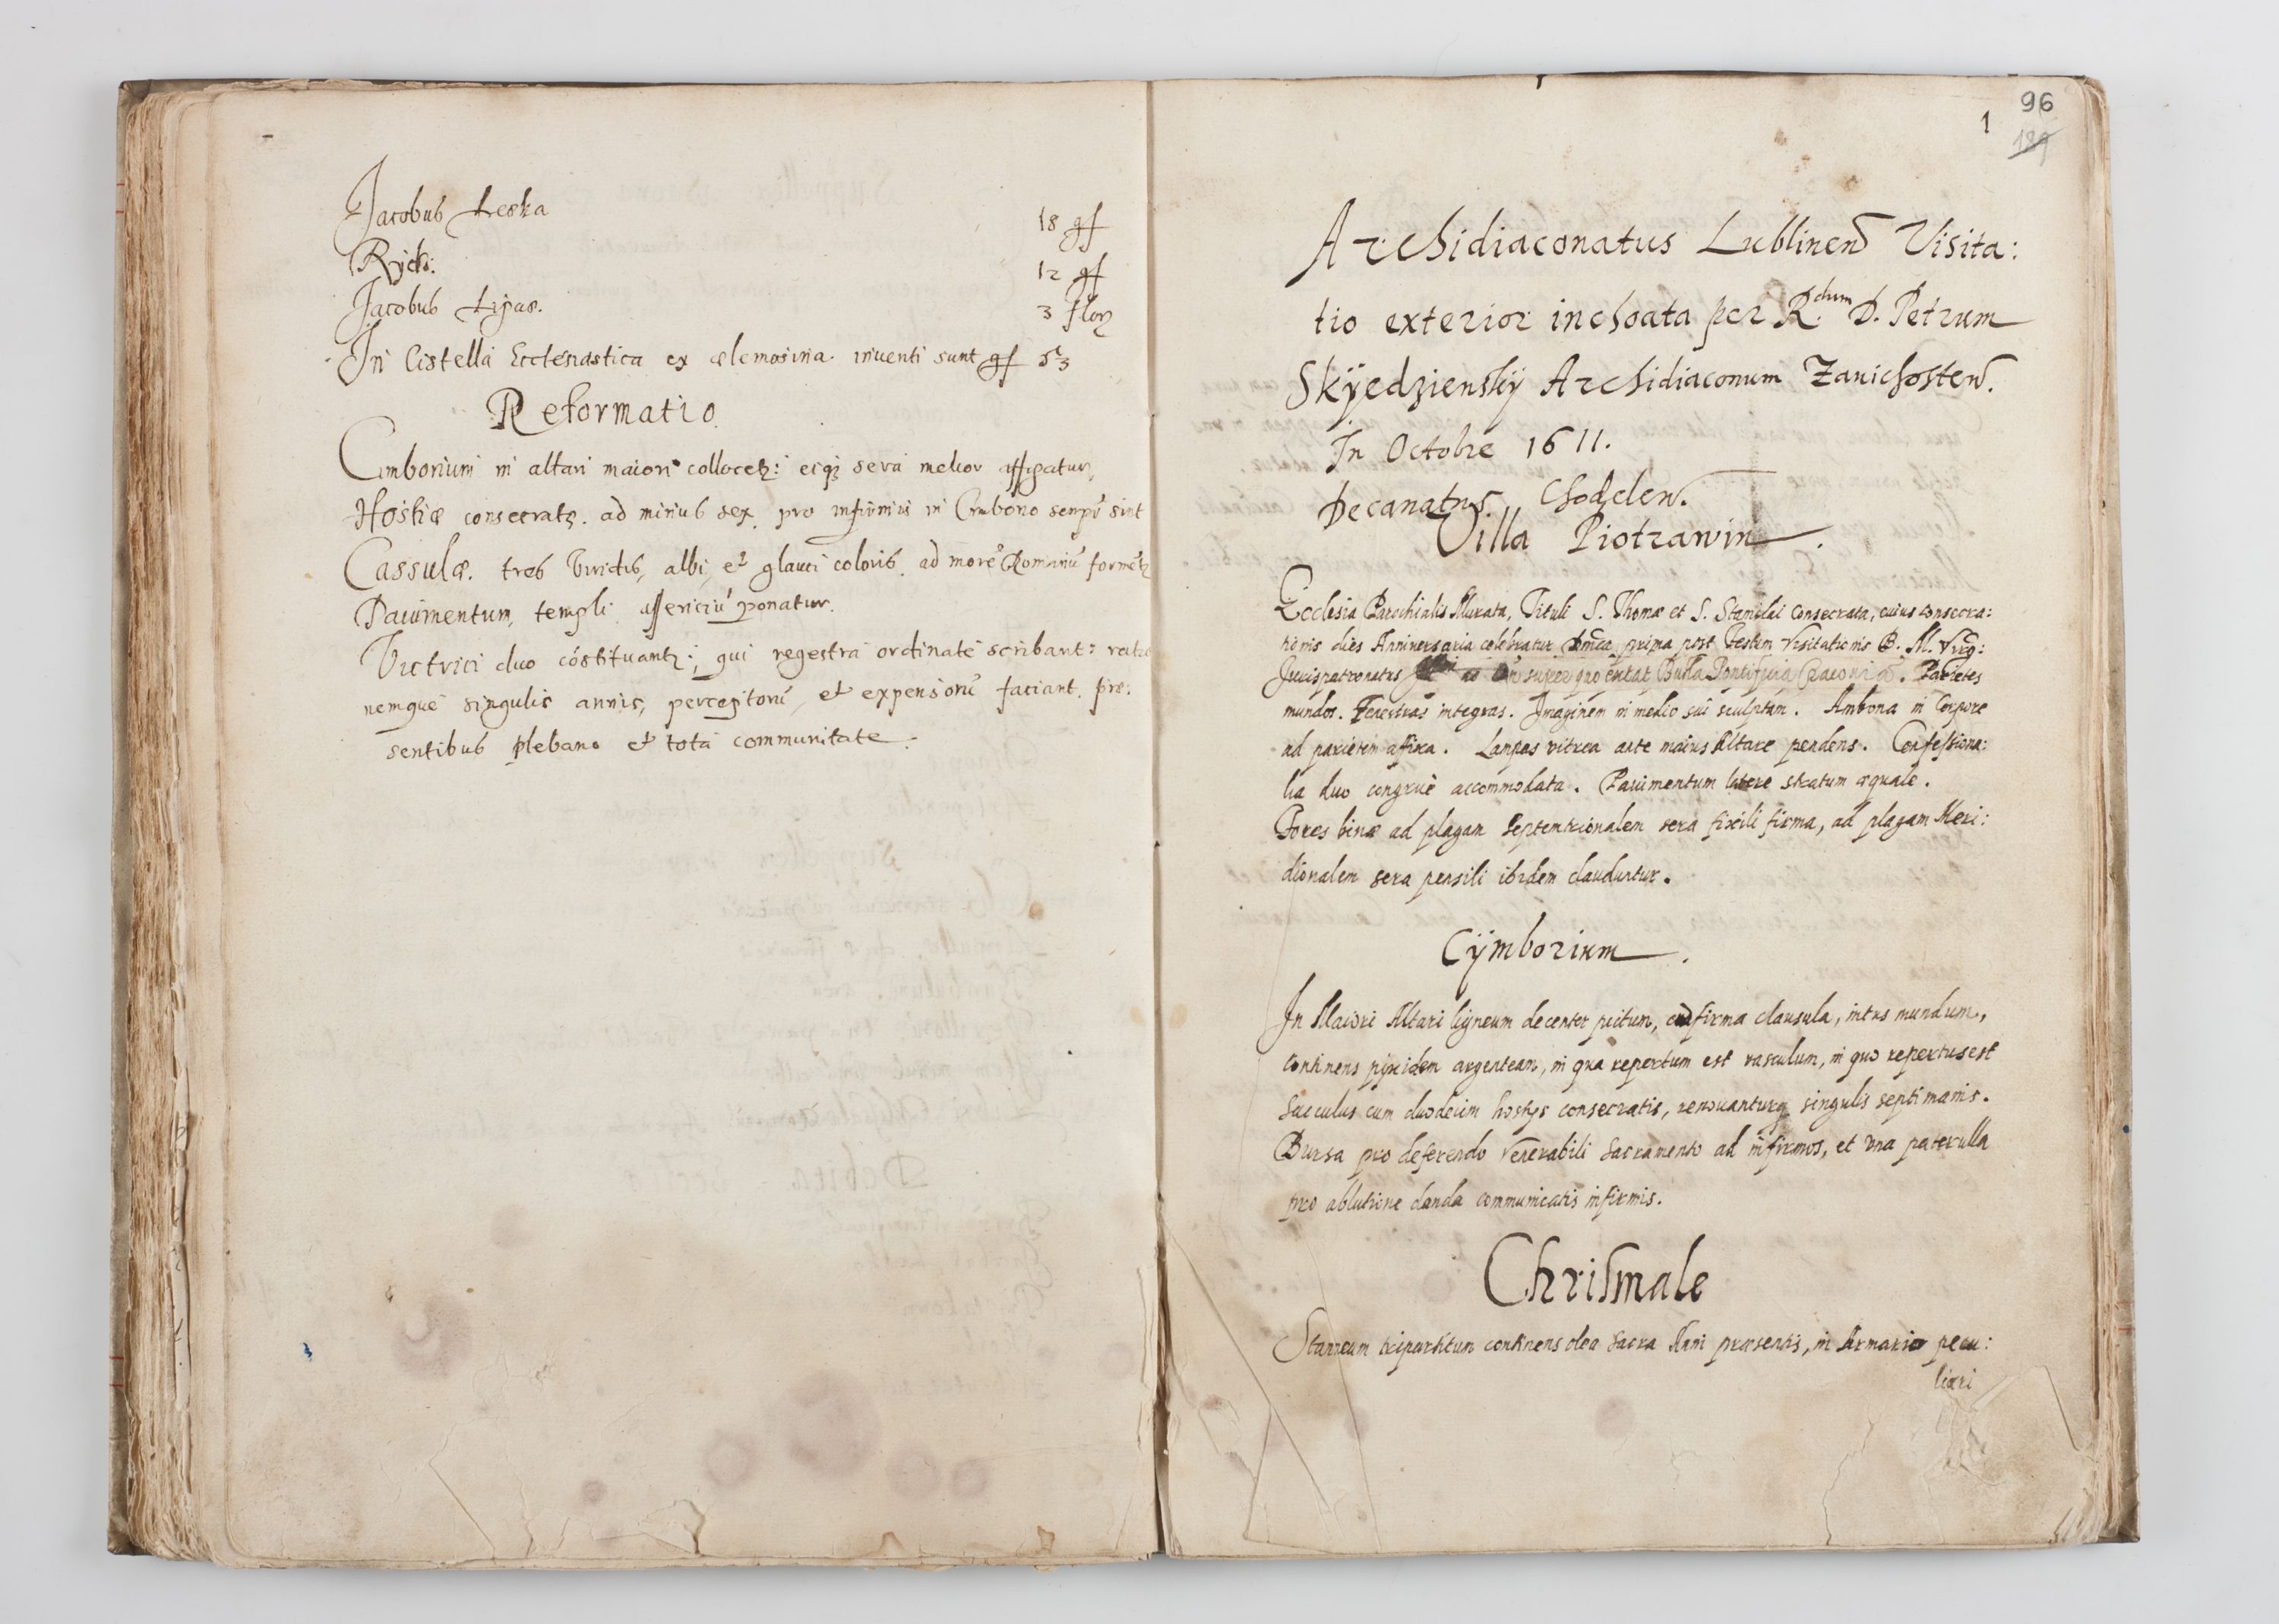 Jacobus Leska 18 gſ
Rÿch: 12 gſ
Jacobus Lisae. 3 flor
In Cistella Ecclesiastica ex aelemosina inventi sunt gſ 53
Reformatio
Cimborium in altari maiori collocetz: eiqz sera melior affigatur,
Hostiæ consecratę. ad minus sex pro infirmis in Cimborio semp sint
Cassulæ. tres viridis, albi, et glauci coloris. ad morē Romanū formētz
Pauimentum templi ponatur.
Victrici duo cōstituantz: qui regestra ordinatè scribant: ratio
nemque singulis annis, perceptorū, et expensorū faciant. præ:
sentibus plebano et tota communitate.
96
1
189
Archidiaconatus Lublinen Visita:
tio exterior inchoata per R.dum D. Petrum
Skÿedzienskÿ Archidiaconum Zanichosten.
In Octobre 1611.
Decanatus Chodelen.
Villa Piotrawin.
Ecclesia Parochialis Murata, Tituli S. Thomæ et S. Stanislai Consecrata, cuius consecra:
tionis dies Anniversaria celebratur Dnica prima post Festum Visitationis B. M. Virg:
Jurispatronatus super quo extat Bulla Pontificia. Parietes
mundos. Fenestras integras. Imaginem in medio sui sculptam. Ambona in Corpore
ad parietem affixa. Lampas vitrea ante maius Altare pendens. Confessiona:
lia duo congruè accommodata. Pauimentum latere stratum æquale.
Fores binæ ad plagam Septentrionalem sera fixili firma, ad plagam Meri:
dionalem sera pensili ibidem clauduntur.
Cÿmborium.
In Maiori Altari ligneum decenter pictum, cū firma clausula, intus mundum,
continens pixidem argenteam, in qua repertum est vasculum, in quo repertus est
Sacculus cum duodecim hostÿs consecratis, renouanturqz singulis septimanis.
Bursa pro deferendo Venerabili Sacramento ad infirmos, et una paterulla
pro ablutione danda communicatis infirmis.
Chrismale
Stanneum tripartitum continens olea Sacra Anni præsentis, in Armario pecu:
liari